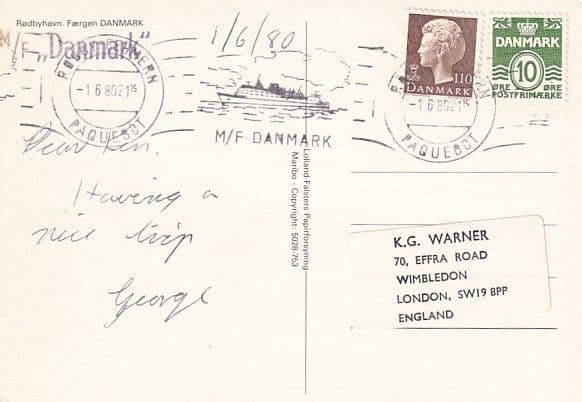 Rødbyhavn. Færgen DANMARK
M/F „Danmark"
1/6/80
-1.6.8021 15
PAQUEBOT
M/F DANMARK
110
DANMARK
DANMARK
10
ØRE ØRE
POSTFRIMÆRKE
-1.6.8021 15
PAQUEBOT
Dear Ken.
Having a
nice trip
George
Lolland-Falsters Papirforsyning
Maribo - Copyright: 5028-753
K.G. WARNER
70, EFFRA ROAD
WIMBLEDON
LONDON, SW19 8PP
ENGLAND